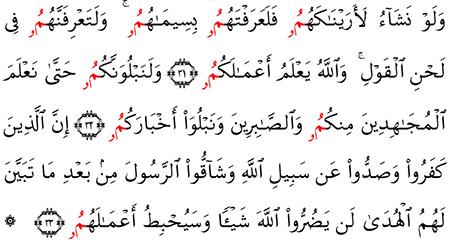 وَلَوْ نَشَآءُ لَأَرَيْنَٰكَهُمُۥ فَلَعَرَفْتَهُمُۥ بِسِيمَٰهُمُۥ ۚ وَلَتَعْرِفَنَّهُمُۥ فِى
لَحْنِ اِ۬لْقَوْلِ ۚ وَاللَّهُ يَعْلَمُ أَعْمَٰلَكُمُۥ ٣١ وَلَنَبْلُوَنَّكُمُۥ حَتَّىٰ نَعْلَمَ
اَ۬لْمُجَٰهِدِينَ مِنكُمُۥ وَالصَّٰبِرِينَ وَنَبْلُوَا۟ أَخْبَارَكُمُۥ ٣٢ إِنَّ اَ۬لَّذِينَ
كَفَرُوا۟ وَصَدُّوا۟ عَن سَبِيلِ اِ۬للَّهِ وَشَآقُّوا۟ اُ۬لرَّسُولَ مِنۢ بَعْدِ مَا تَبَيَّنَ
لَهُمُ اُ۬لْهُدَىٰ لَن يَضُرُّوا۟ اُ۬للَّهَ شَيْـًٔا وَسَيُحْبِطُ أَعْمَٰلَهُمُۥ ٣٣ ۞